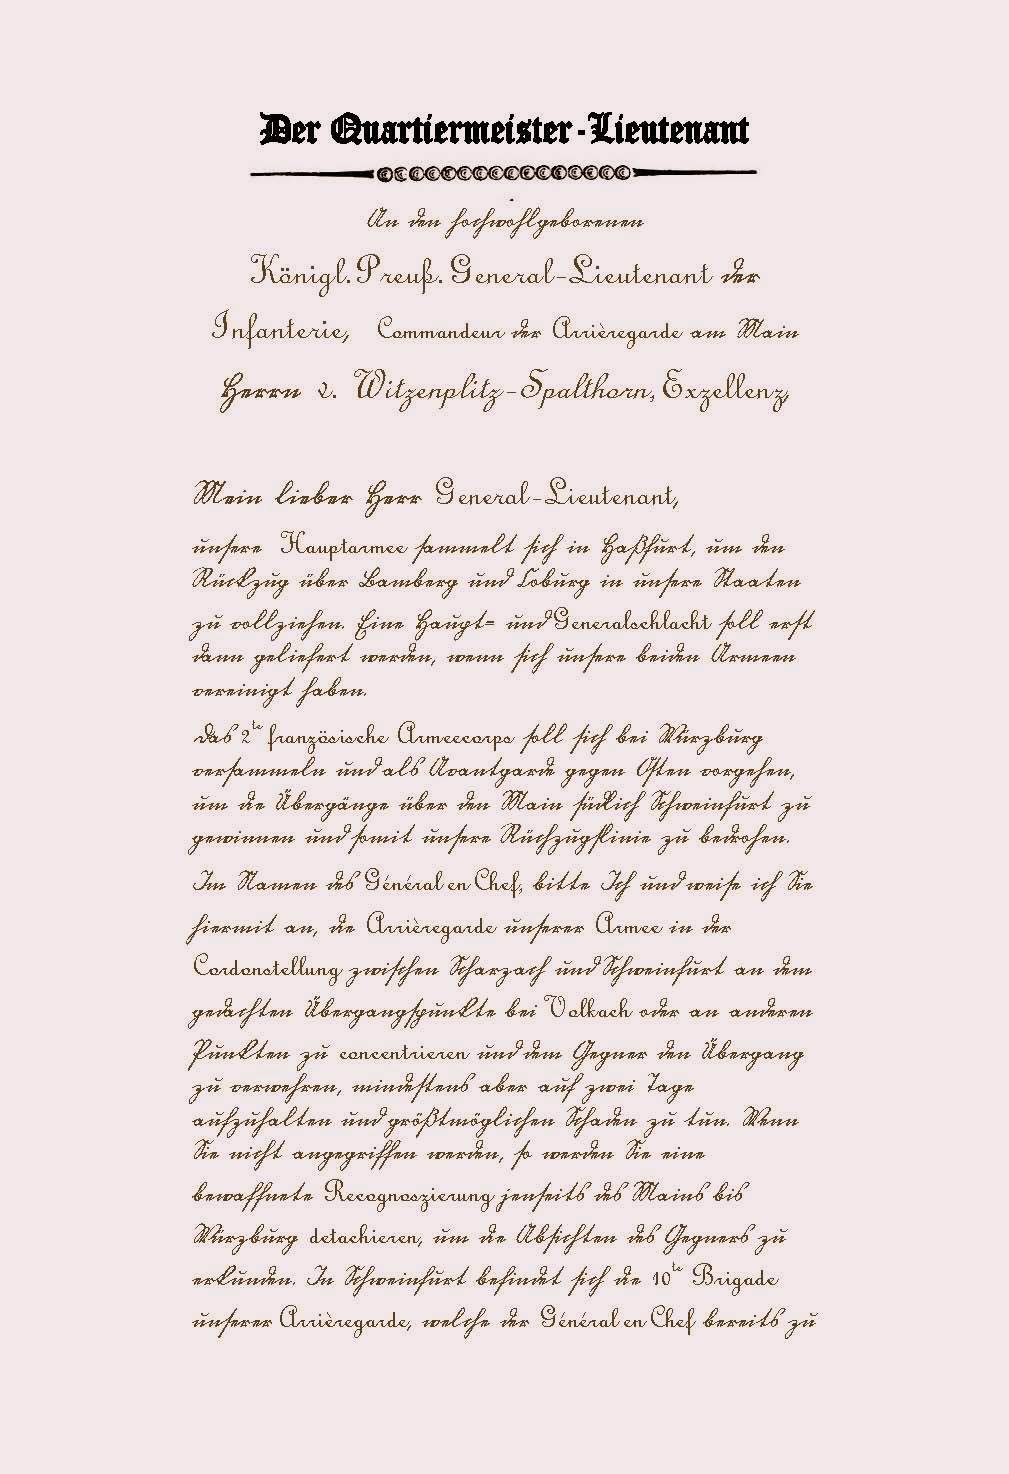 Der Quartiermeister-Lieutenant
An den hochwohlgeborenen
Königl. Preuß. General-Lieutenant der
Infanterie, Commandeur der Arrièregarde am Main
Herrn v. Witzenplitz-Spalthorn, Exzellenz,
Mein lieber Herr General-Lieutenant,
unsere Hauptarmee sammelt sich in Haßfurt, um den
Rückzug über Bamberg und Coburg in unsere Staaten
zu vollziehen. Eine Haupt= und Generalschlacht soll erst
dann geliefert werden, wenn sich unsere beiden Armeen
vereinigt haben.
Das 2te französische Armeecorps soll sich bei Würzburg
versammeln und als Avantgarde gegen Osten vorgehen,
um die Übergänge über den Main südlich Schweinfurt zu
gewinnen und somit unsere Rückzugslinie zu bedrohen.
Im Namen des Général en Chef, bitte Ich und weise ich Sie
hiermit an, die Arrièregarde unserer Armee in der
Cordonstellung zwischen Scharzach und Schweinfurt an dem
gedachten Übergangspunkte bei Volkach oder an anderen
Punkten zu concentrieren und dem Gegner den Übergang
zu verwehren, mindestens aber auf zwei Tage
aufzuhalten und größtmöglichen Schaden zu tun. Wenn
Sie nicht angegriffen werden, so werden Sie eine
bewaffnete Recognoszierung jenseits des Mains bis
Würzburg detachieren, um die Absichten des Gegners zu
erkunden. In Schweinfurt befindet sich die 10te Brigade
unserer Arrièregarde, welche der Général en Chef bereits zu